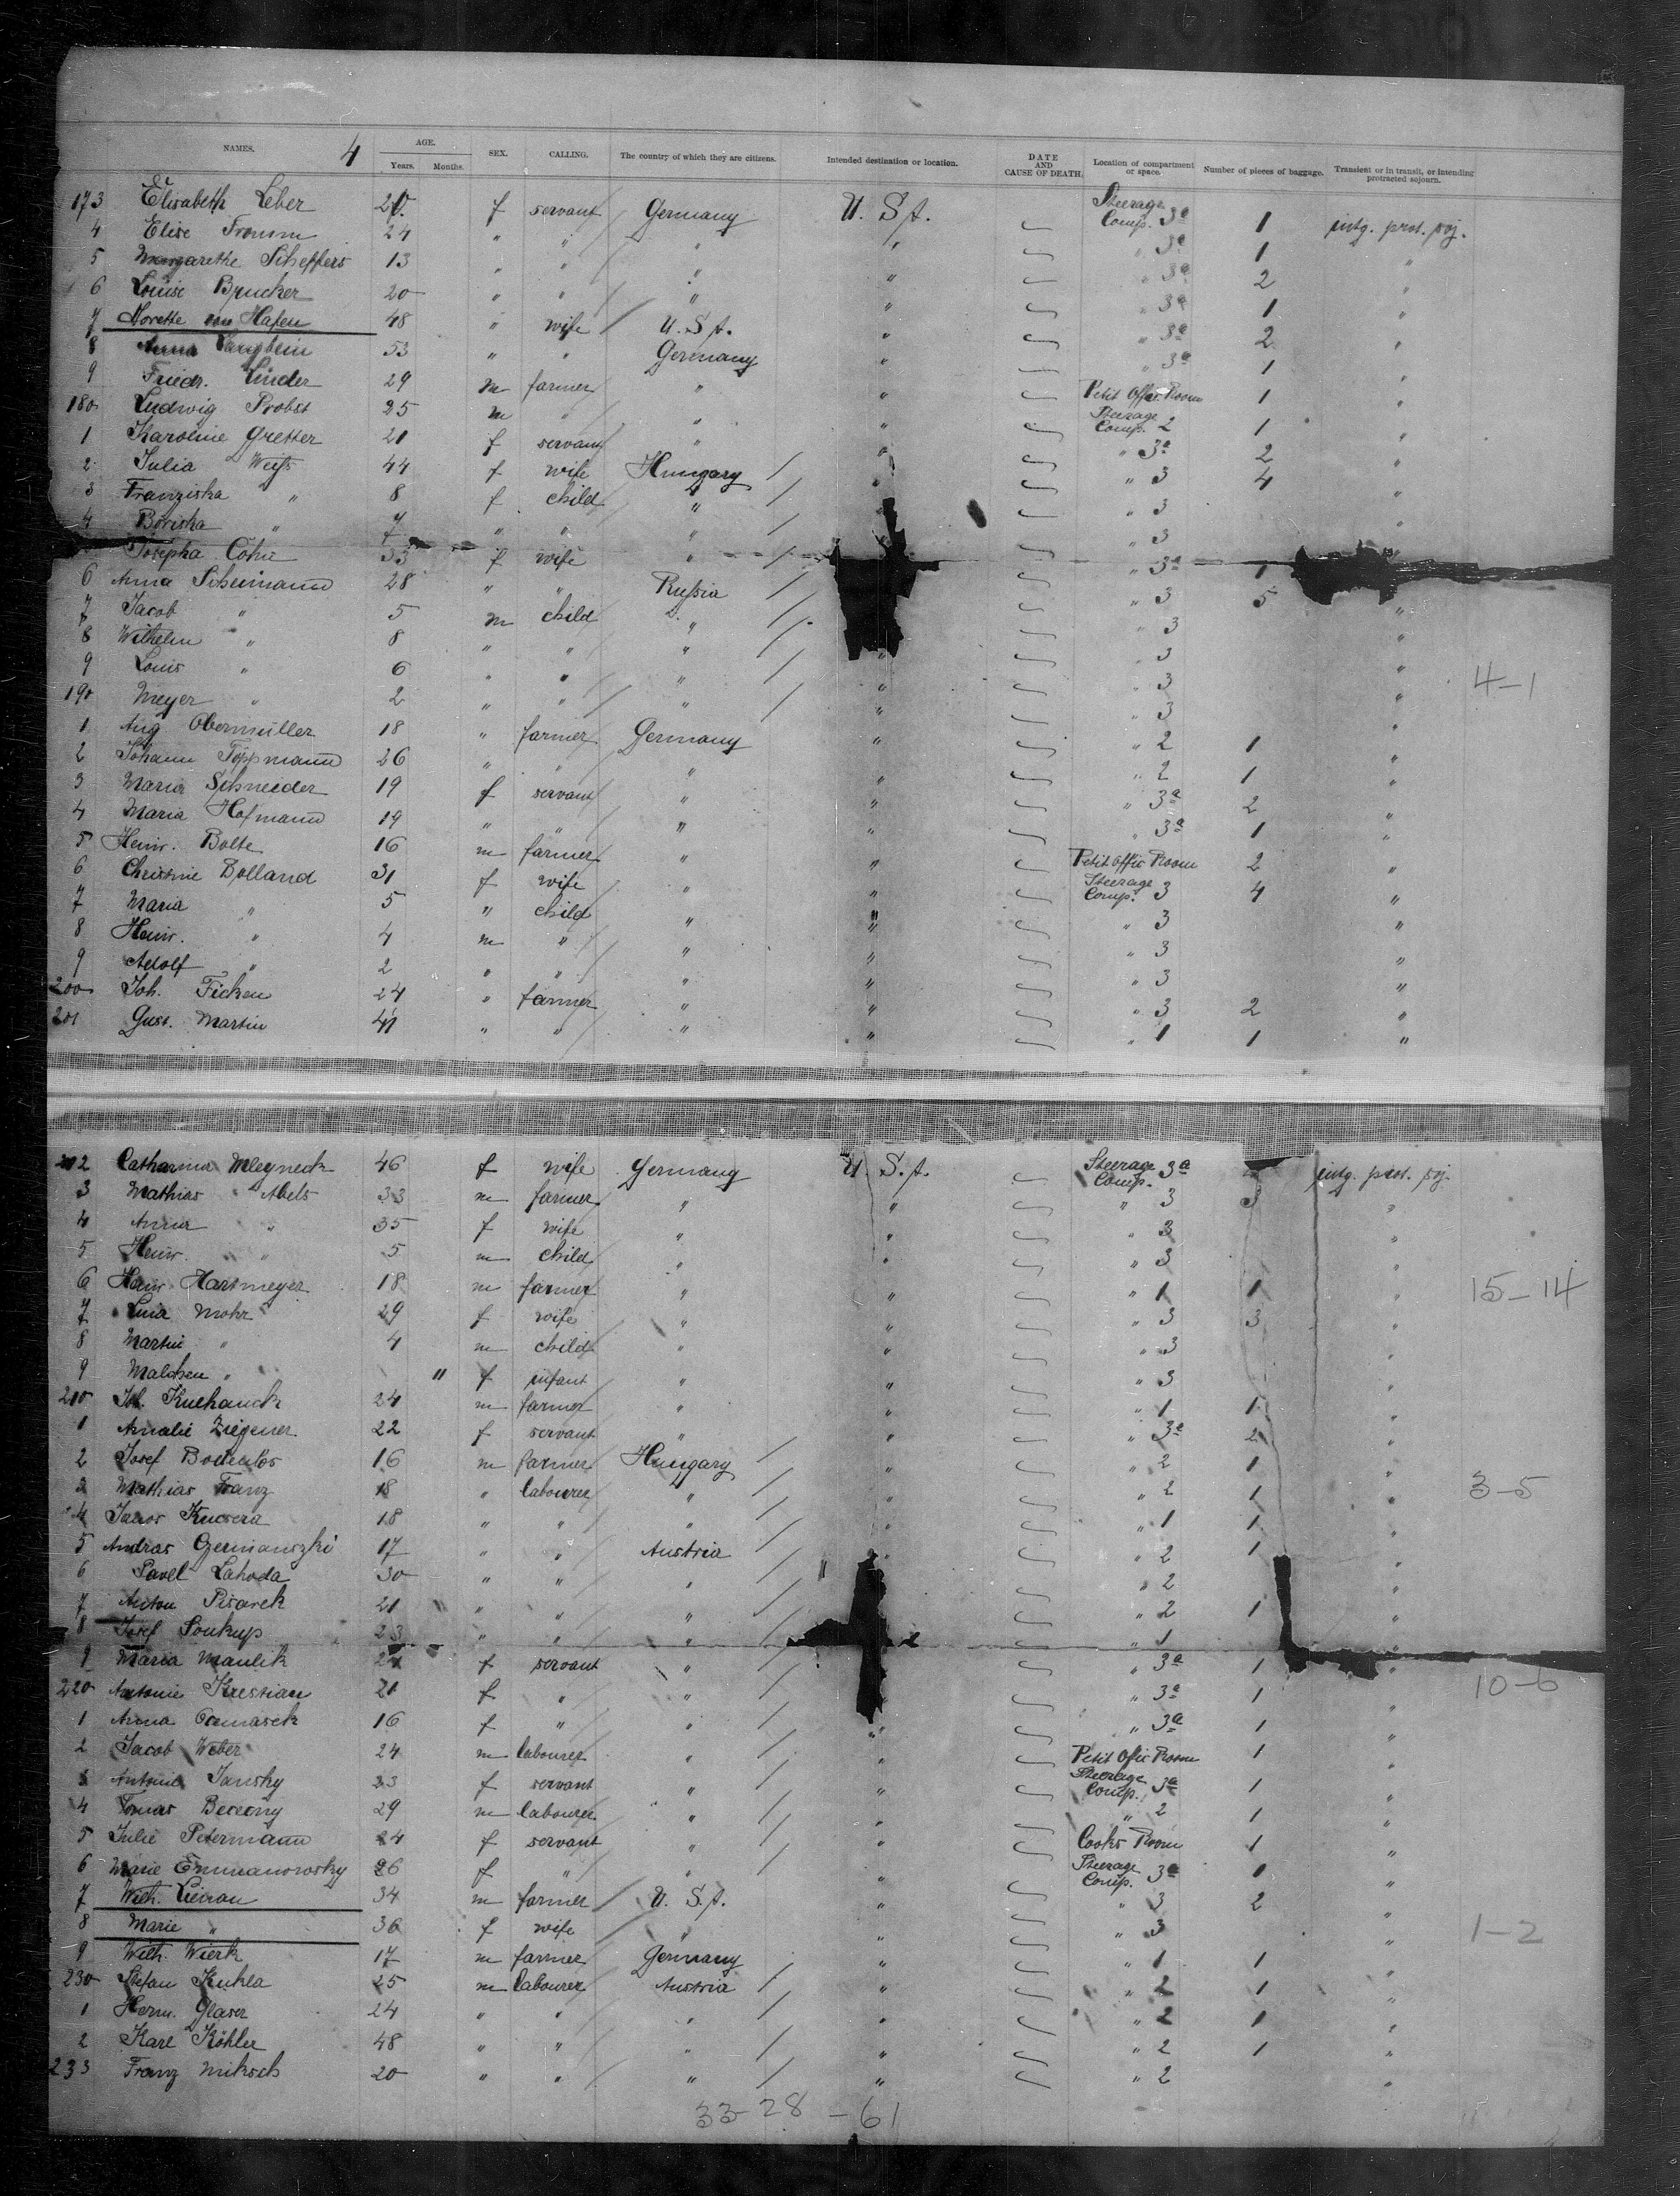 4
NAMES. AGE. Years. Months. SEX. CALLING. The country of which they are citizens. Intended destination or location. DATE AND CAUSE OF DEATH. Location of compartment or space. Number of pieces of baggage. Transient or in transit, or intending protracted sojourn.
173 Elisabeth Leber 20 f servant Germany U. S. A. Steerage Comp. 3a 1 intg. prot. soj.
4 Elise Fromm 24 " " " " " 3a 1 "
5 Margarethe Scheffers 13 " " " " " 3a 2 "
6 Louise Brucker 20 " " " " " 3a 1 "
7 von Hafen 48 " wife U. S. A. " " 3a 2 "
8 Anna Langbein 53 " " Germany " " 3a 1 "
9 Friedr. Linder 29 m farmer " " Petit Offic. Room 1 "
180 Ludwig Probst 25 m " " " Steerage Comp. 2 1 "
1 Karoline Gretter 21 f servant " " " 3a 2 "
2 Julia Weiss 44 f wife Hungary " " 3 4 "
3 Franziska " 8 f child " " " 3 "
4 Boriska " 7 " " " " 3
Josepha Cohn 33 f wife " " 3a 1
6 Anna Scheimann 28 " " Russia " 3 5 "
7 Jacob " 5 m child " " 3 "
8 Wilhelm " 8 " " " " " 3 "
9 Louis " 6 " " " " " 3 " 4-1
190 Meyer " 2 " " " " " 3 "
1 Aug Obermüller 18 " farmer Germany " " 2 1 "
2 Johann Töppmann 26 " " " " " 2 1 "
3 Maria Schneider 19 f servant " " " 3a 2 "
4 Maria Hofmann 19 " " " " " 3a 1 "
5 Heinr. Bolte 16 m farmer " " Petit Offic Room 2 "
6 Christine Bolland 31 f wife " " Steerage Comp. 3 4 "
7 Maria " 5 " child " " " 3 "
8 Heinr. " 4 m " " " " 3 "
9 Adolf " 2 " " " " " 3 "
200 Joh. Ficken 24 " farmer " " " 3 2 "
201 Gust. Martin 41 " " " " " 1 1 "
202 Catharina Mleyneck 46 f wife Germany U. S. A. Steerage Comp. 3a intg. prot. soj.
3 Mathias Abels 33 m farmer " " " 3 3 "
4 Anna " 35 f wife " " " 3 "
5 Heinr. " 5 m child " " " 3 "
6 Heinr. Hartmeyer 18 m farmer " " " 1 1 " 15-14
7 Lina Mohr 29 f wife " " " 3 3 "
8 Martin " 4 m child " " " 3 "
9 Malchen " 11 f infant " " " 3 "
210 Joh. Kuehanck 24 m farmer " " " 1 1 "
1 Amalie Ziegener 22 f servant " " " 3a 2 "
2 Josef 16 m farmer Hungary " " 2 1 "
3 Mathias Franz 18 " labourer " " " 2 1 " 3-5
4 Janos Kucsera 18 " " " " " 1 1 "
5 Andras Germanszki 17 " " Austria " " 2 1 "
6 Pavel Lahoda 30 " " " " 2 "
7 Anton Pisarek 21 " " " " 2 1 "
8 Josef Soukup 23 " " " " 1 "
9 Maria Maulik 24 f servant " " 3a 1 "
220 Antonie Kristian 21 f " " " 3a 1 " 10-6
1 Anna 16 f " " " " 3a 1 "
2 Jacob Weber 24 m labourer " " Petit Ofic Room 1 "
3 Antonie Jansky 23 f servant " " Steerage Comp. 3a 1 "
4 Tomas 29 m labourer " " " 2 1 "
5 Julie Petermann 24 f servant " " Cooks Room 1 "
6 Marie Emmanowsky 26 f " " " Steerage Comp. 3a 1 "
7 Wilh. Lienau 34 m farmer U. S. A. " " 3 2 "
8 Marie " 36 f wife " " " 3 " 1-2
9 Wilh. Wierk 17 m farmer Germany " " 1 1 "
230 Stefan Kuhla 25 m labourer Austria " " 2 1 "
1 Herm. Glaser 24 " " " " " 2 1 "
2 Karl Köhler 48 " " " " " 2 1 "
233 Franz Miksch 20 " " " " " 2 "
33-28-61